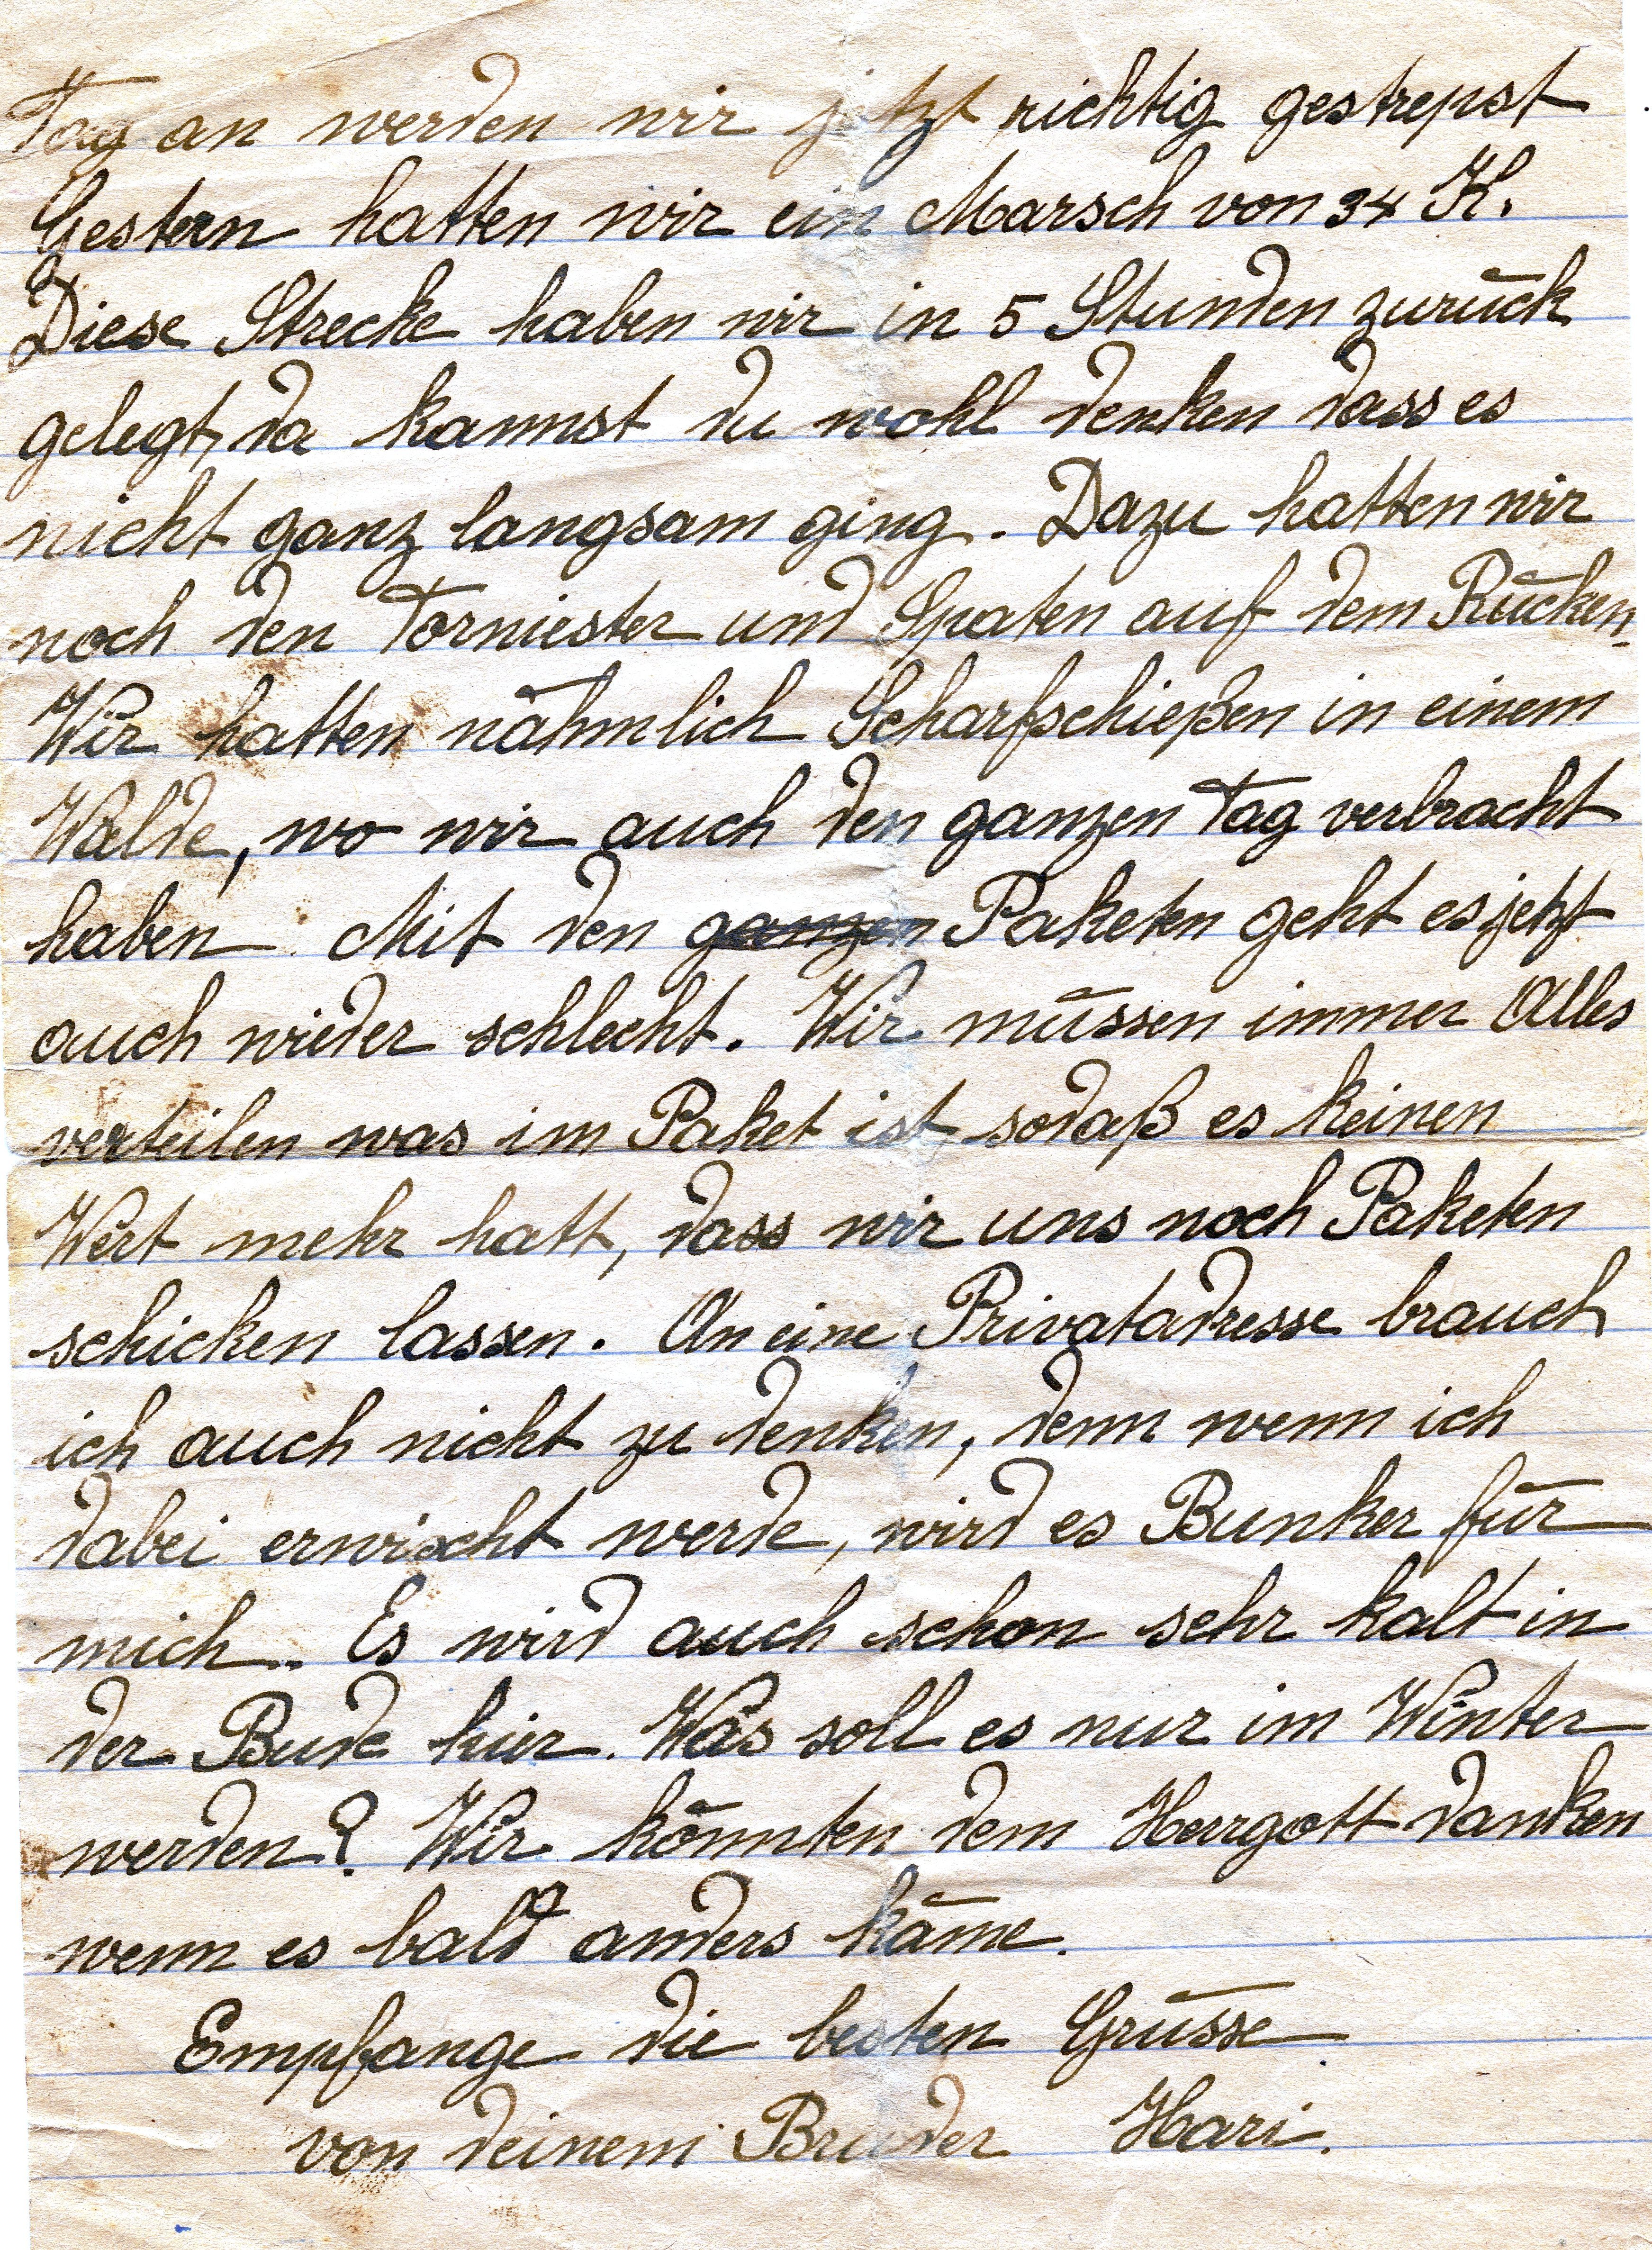 Tag an werden wir jetzt richtig gestrepst
Gestern hatten wir ein Marsch von 34 K.
Diese Strecke haben wir in 5 Stunden zurück
gelegt, da kannst du wohl denken dass es
nicht ganz langsam ging. Dazu hatten wir
noch den Torniester und Spaten auf dem Rücken.
Wir hatten nähmlich Scharfschießen in einem
Walde, wo wir auch den ganzen Tag verbracht
haben. Mit den ganzen Paketen geht es jetzt
auch wieder schlecht. Wir müssen immer Alles
verteilen was im Paket ist, sodaß es keinen
Wert mehr hatt, dass wir uns noch Paketen
schicken lassen. An eine Privatadresse brauch
ich auch nicht zu denken, denn wenn ich
dabei erwischt werde, wird es Bunker für
mich. Es wird auch schon sehr kalt in
der Bude hier. Was soll es nur im Winter
werden? Wir könnten dem Herrgott danken
wenn es bald anders käme.
Empfange die besten Grüsse
von deinem Bruder Hari.